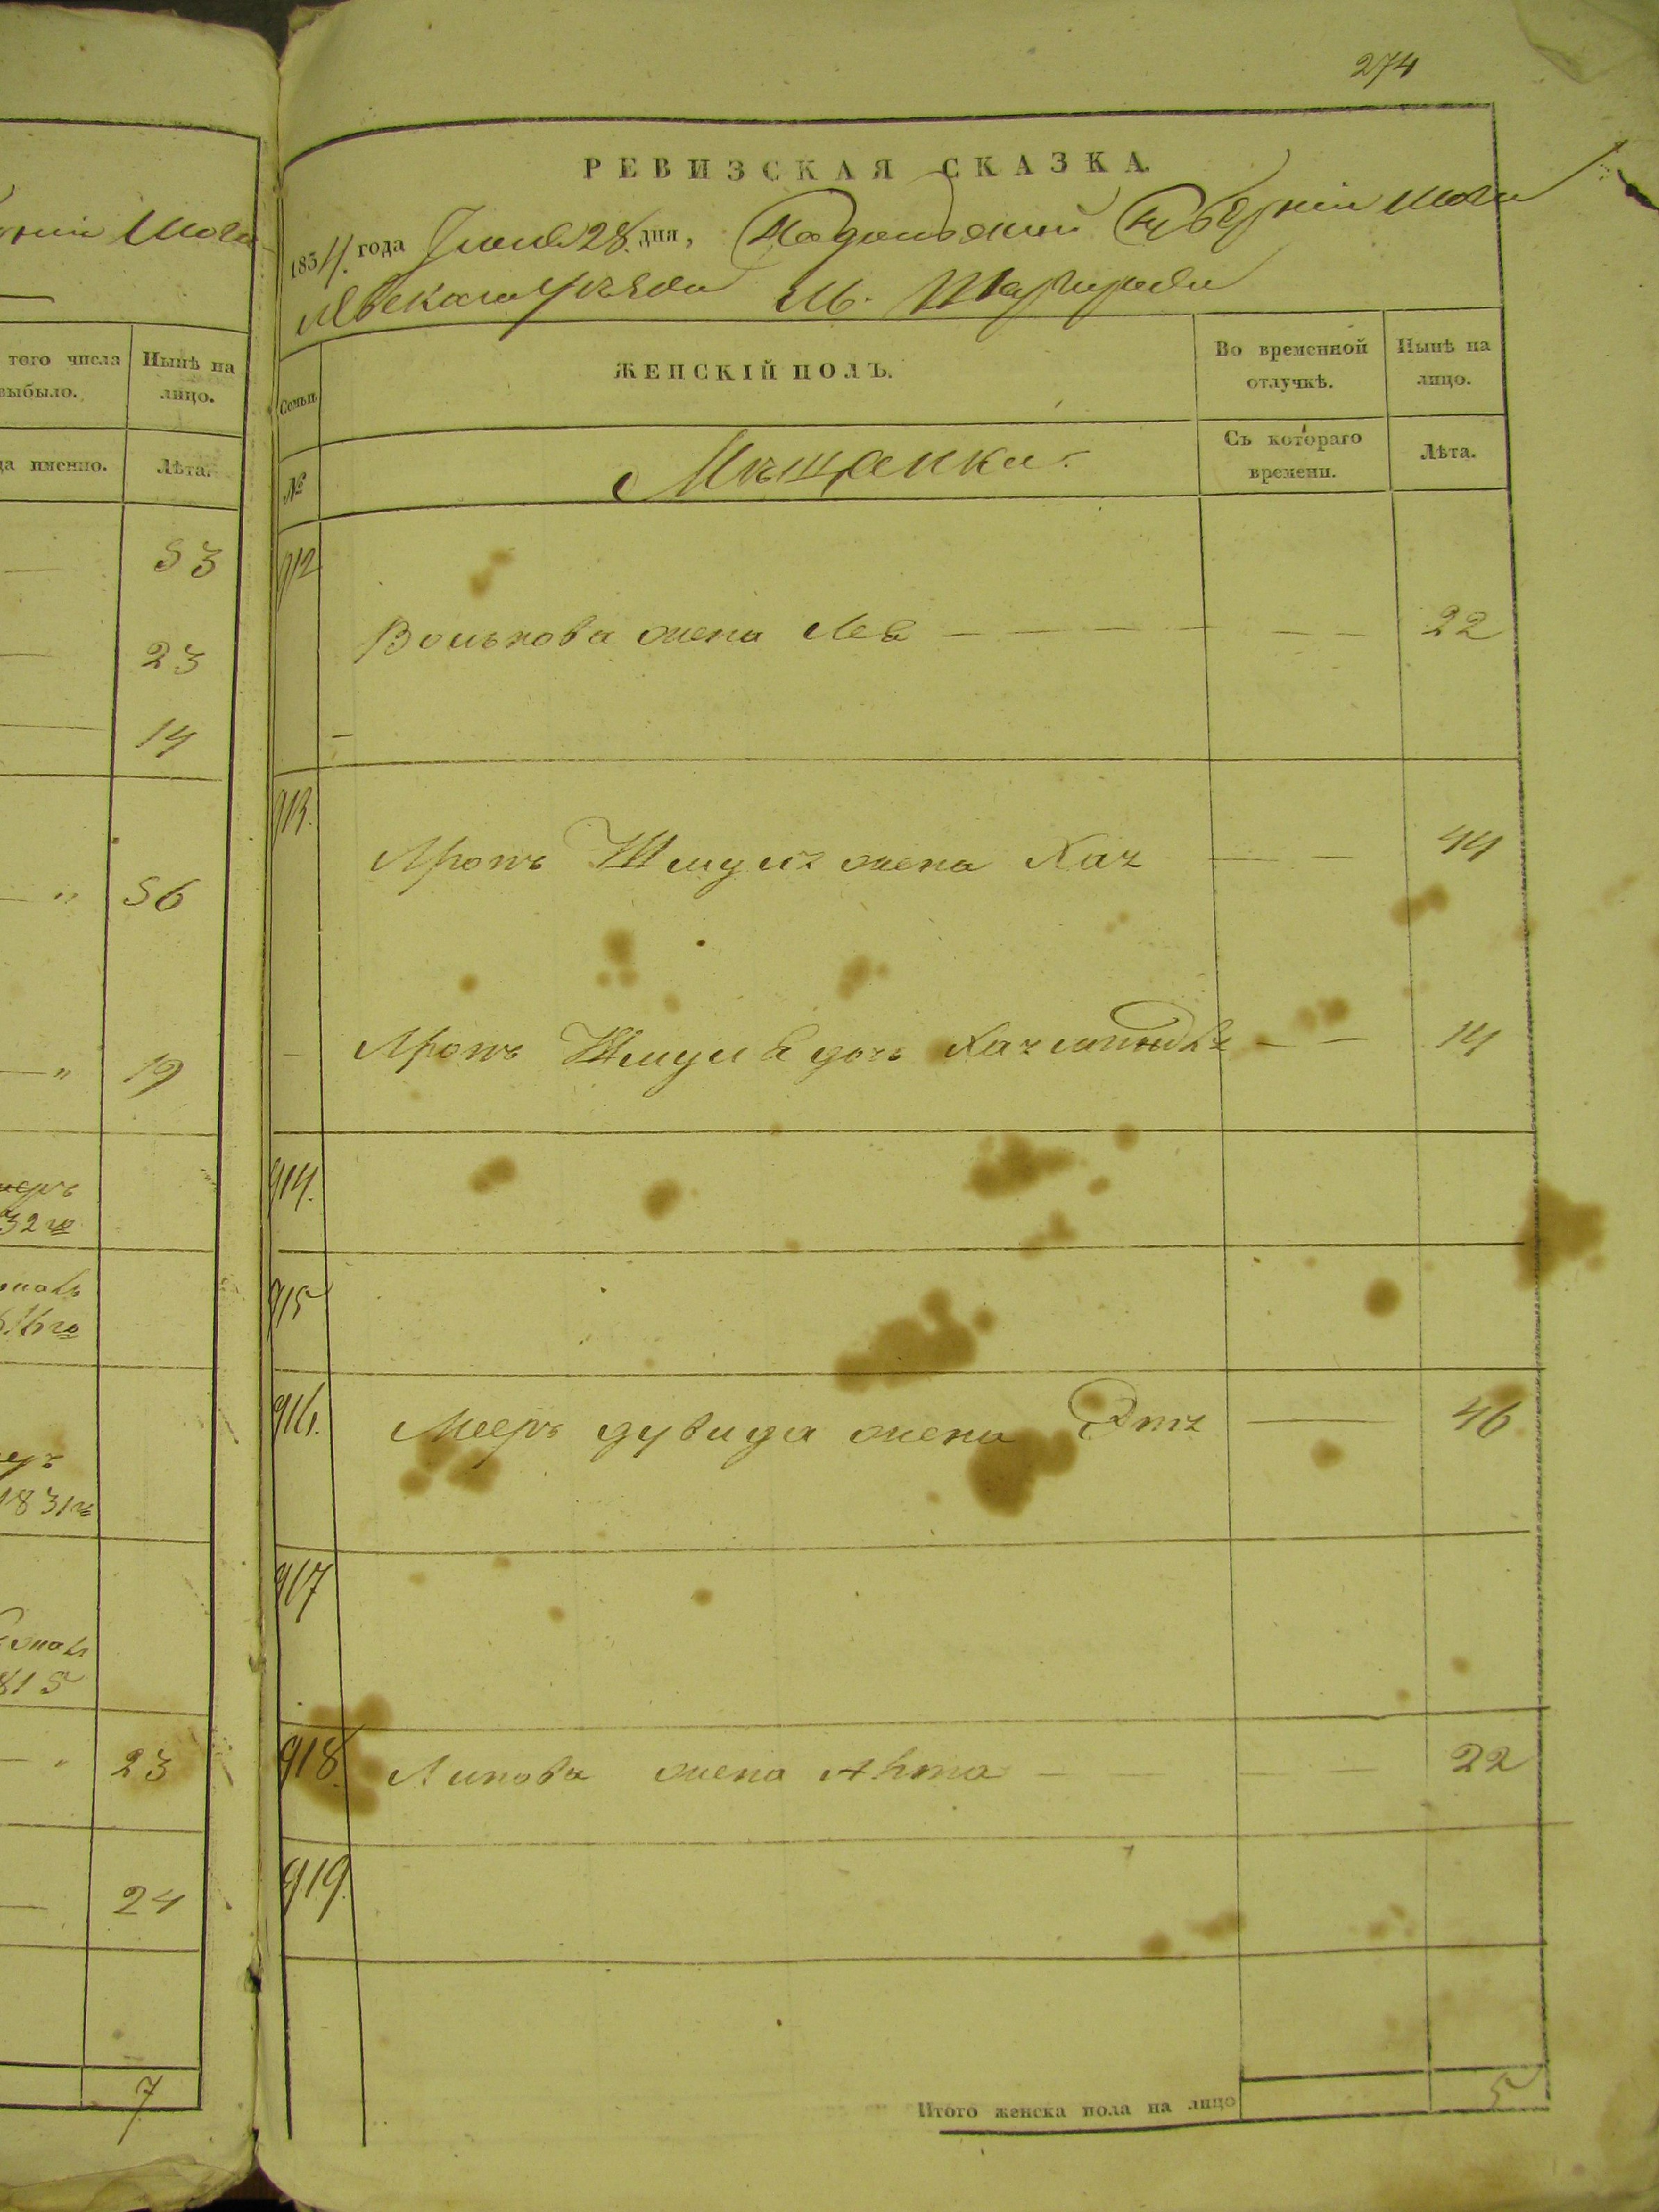 274
РЕВИЗСКАЯ СКАЗКА
1834. года Іюня 28. дня, Подольской Губерніи Моги
левскаго уезда М. Шаргорода
того числа
выбыло.
Нынѣ на
лицо.
именно.
Лѣта.
53
23
14
56
19
32го
1831го
815
23
24
7
Семьи.
№
ЖЕНСКІЙ ПОЛЪ.
Мещанки
Во временной
отлучкѣ.
Съ котораго
времени.
Нынѣ на
лицо.
Лѣта.
912
Волькова жена Лея 22
913.
Аронъ Шмуля жена Хая 44
Аронъ Шмуля дочь 14
914.
915
916.
Мееръ дувида жена Этя 46
917
918. Липова жена 22
919.
Итого женска пола на лицо 5